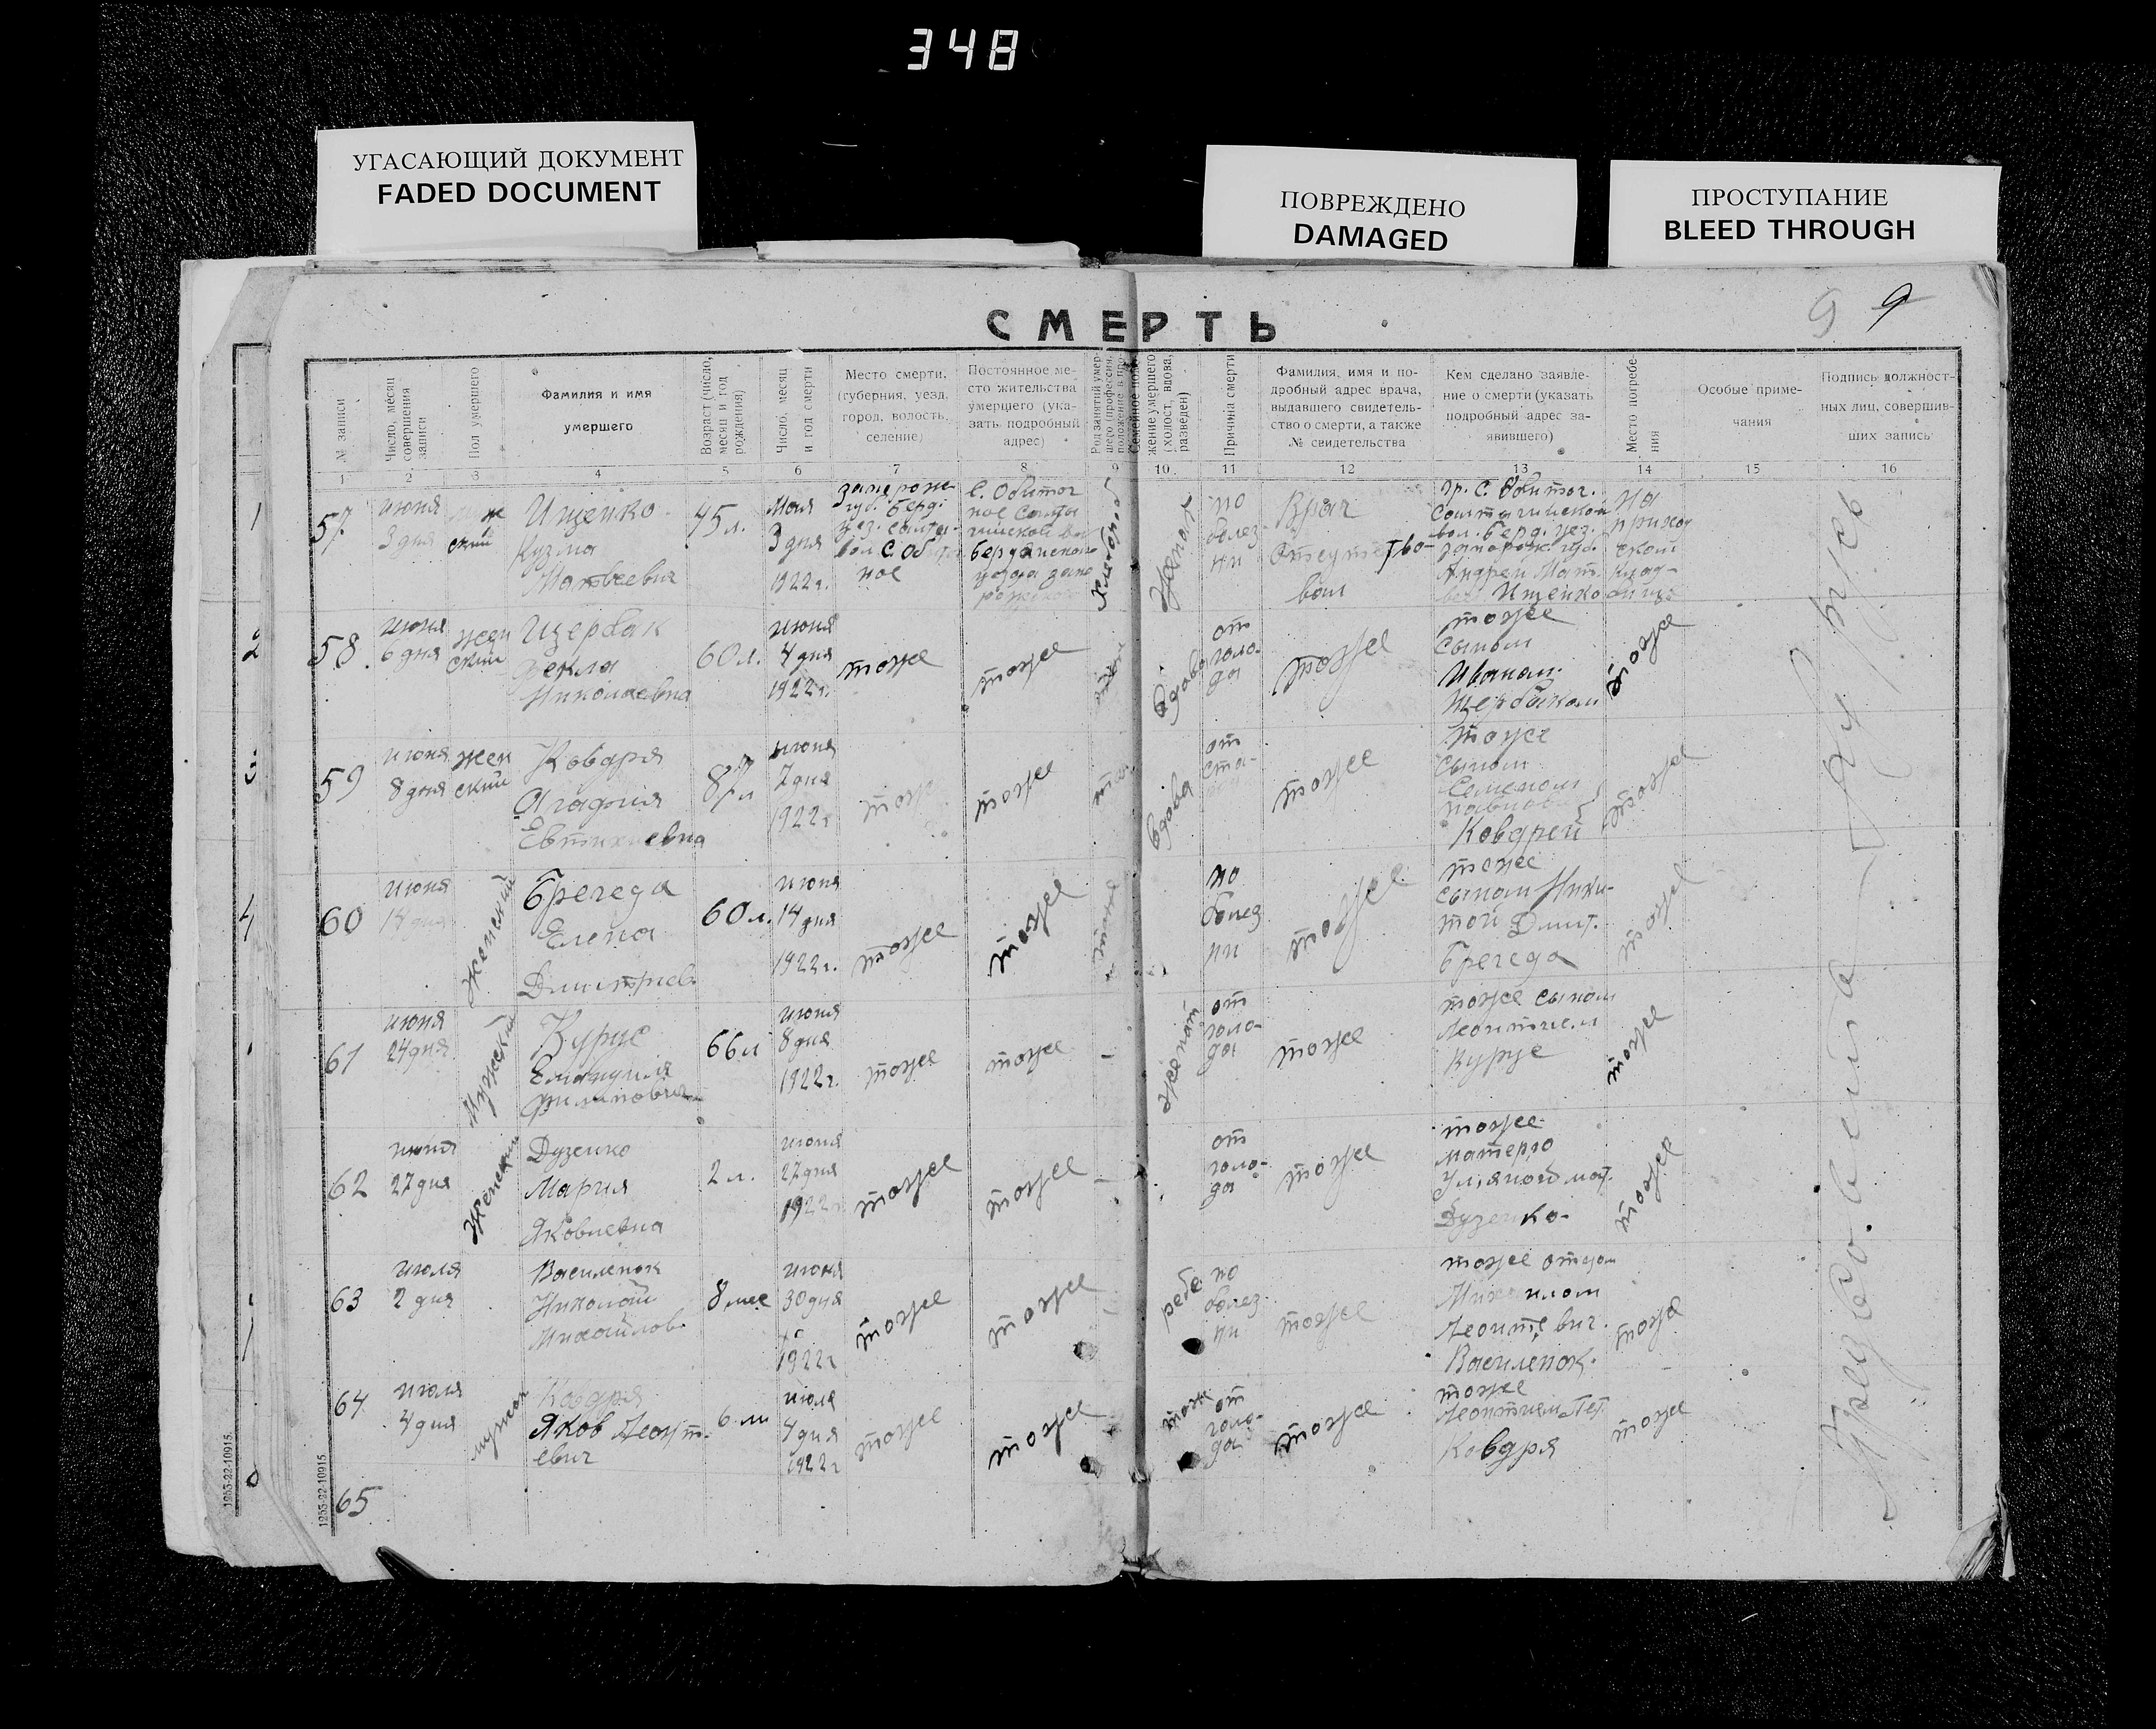 348
УГАСАЮЩИЙ ДОКУМЕНТ
FADED DOCUMENT
ПОВРЕЖДЕНО
DAMAGED
ПРОСТУПАНИЕ
BLEED THROUGH
9 9
СМЕРТЬ
№ записи
Число, месяц
совершения
записи
Пол умершего
Фамилия и имя
умершего
Возраст (число,
месяц и год
рождения)
Число, месяц
и год смерти
Место смерти,
(губерния, уезд,
город, волость,
селение)
Постоянное ме-
сто жительства
умершего (ука-
зать подробный
адрес)
Род занятий умер-
шего (профессия,
положение в про-
Семейное поло-
жение умершего
(холост, вдова,
разведен)
Причина смерти
Фамилия, имя и по-
дробный адрес врача,
выдавшего свидетель-
ство о смерти, а также
№ свидетельства
Кем сделано заявле-
ние о смерти (указать
подробный адрес за-
явившего)
Место погребе-
ния
Особые приме-
чания
Подпись должност-
ных лиц, совершив-
ших запись
1 2 3 4 5 6 7 8 9 10 11 12 13 14 15 16
57
июня
3 дня
ский
Ищенко
Кузма
Матвеевич
45 л.
Мая
3 дня
1922 г.
запорож
губ. Берд.
уез.
вол. С. Оби
ное
С. Обиточ
ное
Бердянского
уезда запо
хлебороб
Женат
по
болез
ни
Врач
Отсутство-
вал
гр. С. Обиточ.
вол. берд. уез.
запорож. губ.
Андрей Мат.
Ищенко
на
приход
ском
клад-
бище
58.
июня
6 дня
жен
ский
Щербак
Фекла
Николаевна
60 л.
июня
4 дня
1922 г.
тоже
тоже
вдова
от
голо-
да
тоже
тоже
сыном
Иваном
Щербаком
тоже
59
июня
8 дня
жен
ский
Ковдря
Агафия
Евтихиевна
87 л
июня
7 дня
1922 г
тоже
тоже
вдова
от
ста-
тоже
тоже
сыном
Семеном
Ковдрей
тоже
60
июня
14 дня
Женский
Брегеда
Елена
Дмитриев
60 л.
июня
14 дня
1922 г.
тоже
тоже
тоже
по
болез
ни
тоже
тоже
сыном Ники-
той Дмит.
Брегеда
тоже
61
июня
24 дня
Мужский
Курус
Емануил
Филипович
66 л
июня
8 дня
1922 г.
тоже
тоже
–
женат
от
голо-
да
тоже
тоже сыном
Леонтием
Курус
тоже
62
июня
27 дня
Женский
Дузенко
Мария
Яковлевна
2 л.
июня
27 дня
1922 г
тоже
тоже
–
от
голо-
да
тоже
тоже
матерю
Ульяной мат.
Дузенко
тоже
63
июля
2 дня
Василенок
Николай
Михайлов
8 мес
июня
30 дня
1922 г
тоже
тоже
ребе
по
болез
ни
тоже
тоже отцом
Михаилом
Леонтевич.
Василенок.
тоже
64
июля
4 дня
мужск
Ковдря
Яков Леонт-
евич
июля
4 дня
1922 г
тоже
тоже
тоже
от
голо-
да
тоже
тоже
Леонтием Пет.
Ковдря
тоже
65
1263-22-10915.
1263-22-10915